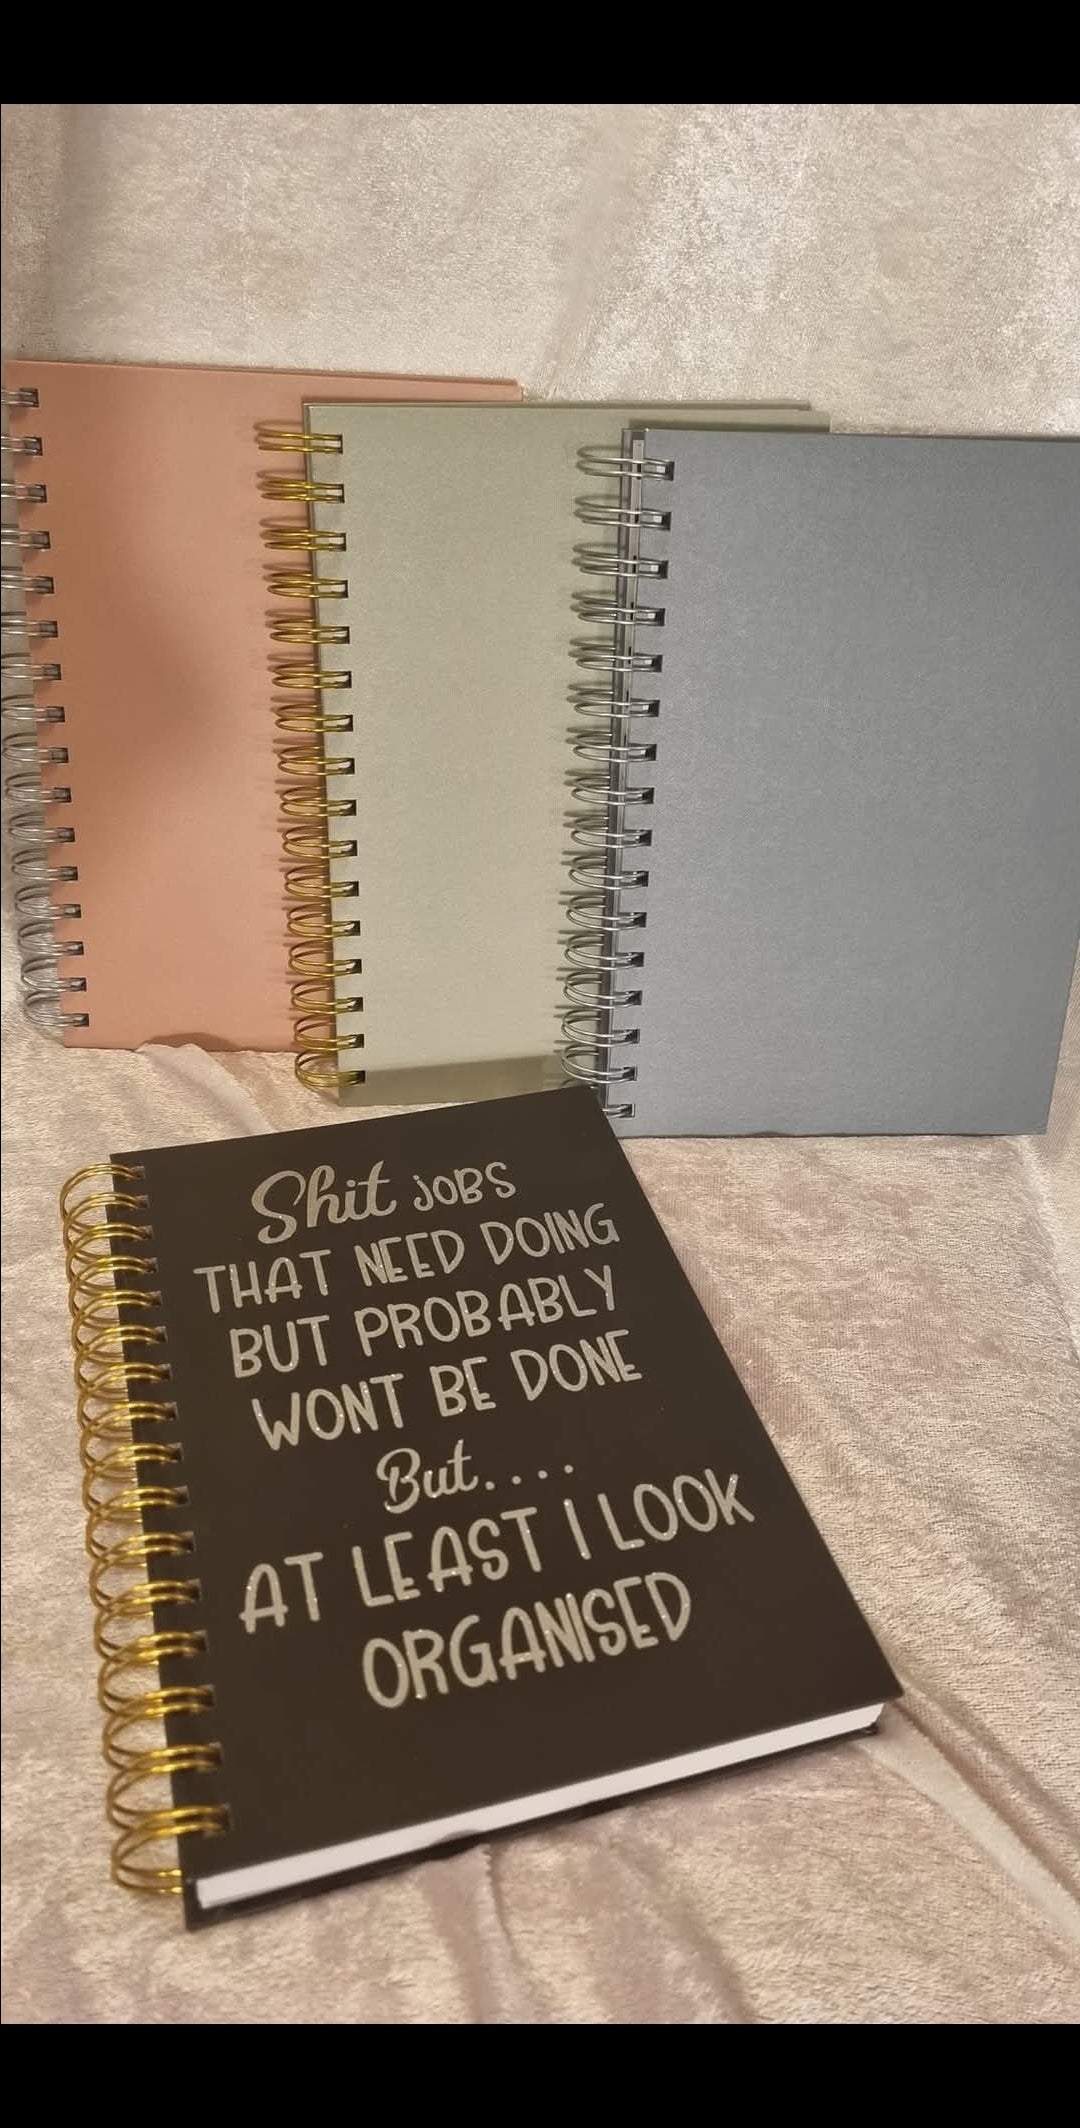 Shit JOBS
THAT NEED DOING
BUT PROBABLY
WONT BE DONE
But....
AT LEAST I LOOK
ORGANISED